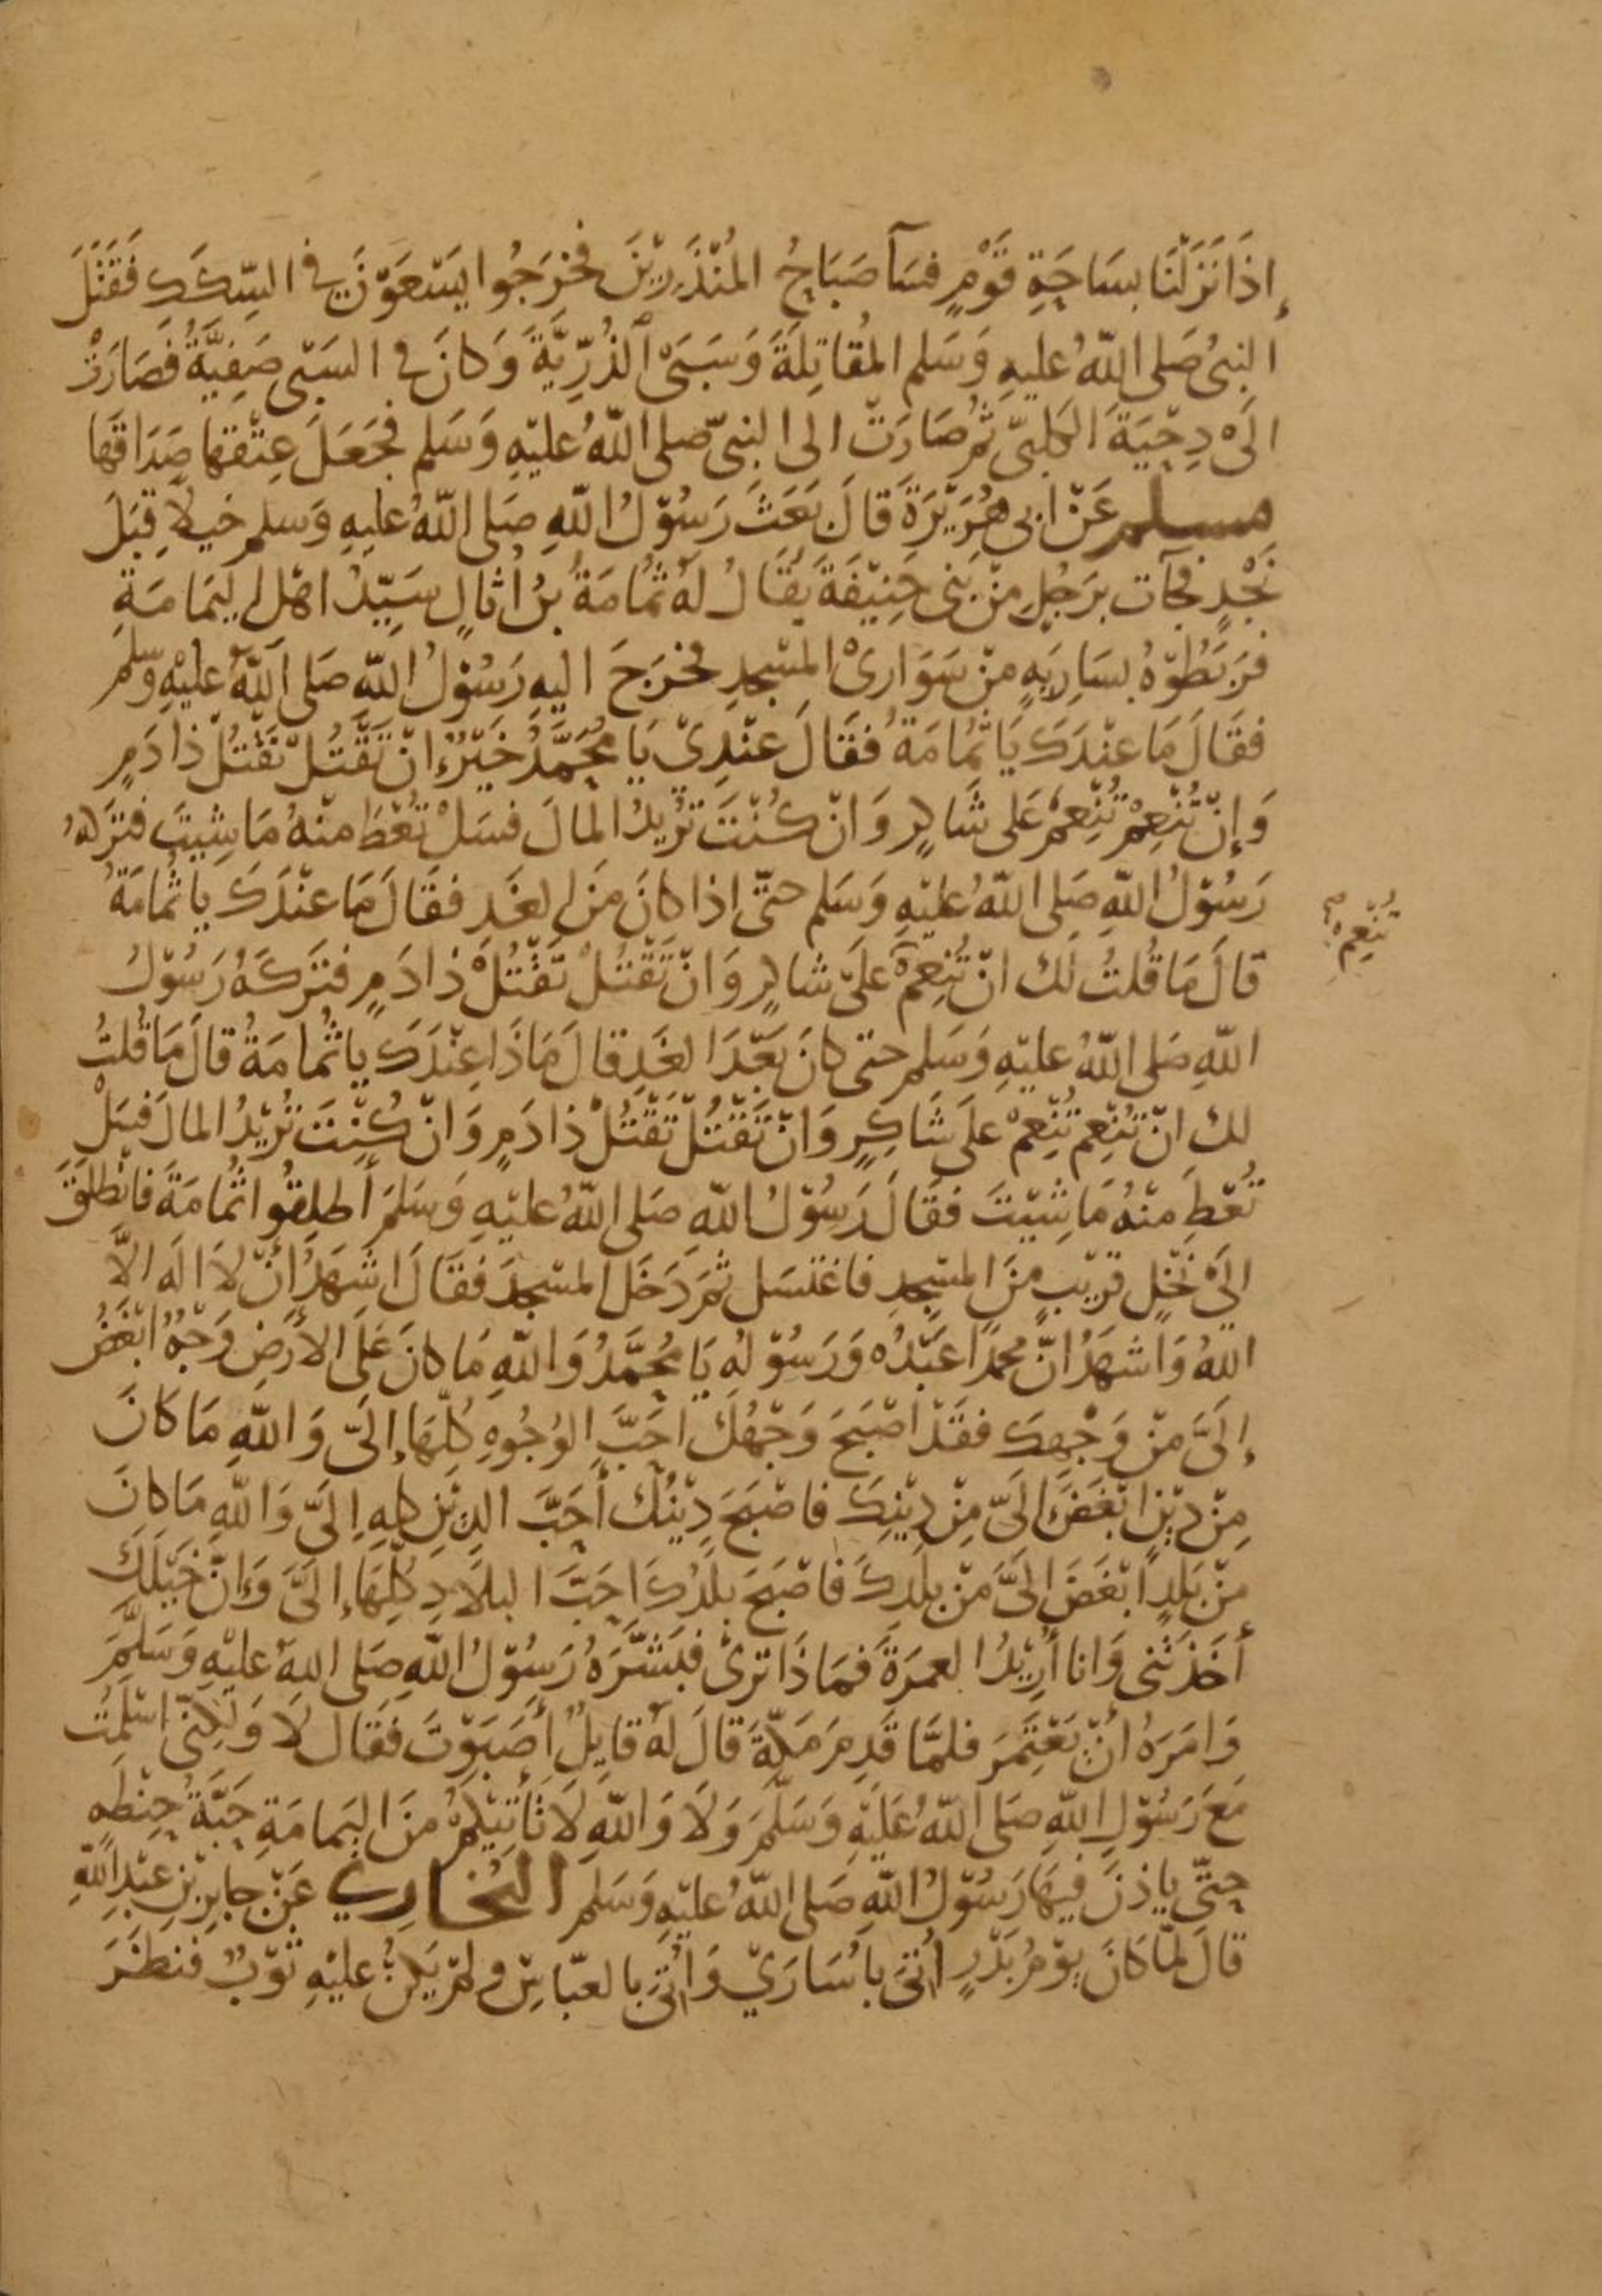 إِذَا نَزَلْنَا بِسَاحَةِ قَوْمٍ فَسَآ صَبَاحُ المُنْذَرِيْنَ فخرَجُوا يَسْعَوْنَ فِي السِّكَكِ فَقَتَلَ
النبىُ صَلى اللّٰهُ عليهِ وَسَلم المُقاتِلَةَ وَسَبَىْ الذُّرِّيَّةَ وَكانَ فى السَبْى صَفِيَّةُ فَصَارَتْ
الَىْ دِحْيَةَ الكَلبىّ ثمُ صَارَتْ الى النبىّ صلى اللّٰهُ عليْهِ وَسَلم فجَعَلَ عِتْقَها صَدَاقَها
مسلم عَنْ ابى هُرَيْرَةَ قالَ بَعَثَ رَسُوْلُ اللّٰهِ صَلى اللّٰهُ عليهِ وَسلم خيلاً قِبَلَ
نَجْدٍ فجآت برَجُلٍ مِنْ بَنى حَنِيْفَةَ يُقَالُ لهُ ثُمَامَةُ بنُ اُثالٍ سَيِّدُ اهْل اليَمَامَةِ
فرَبَطُوْهُ بسَارِيَهٍ مِنْ سَوَارِىْ المسْجِدِ فخرَجَ اليهِ رَسُوْلُ اللّٰهِ صَلى اللّٰهُ عليْهِ وَسلمَ
فقَالَ مَا عنْدَكَ يَا ثُمَامَةُ فقَالَ عنْدِيْ يَا مُحَمَّدُ خَيْرٌ إنْ تَقْتُلْ تَقْتُلْ ذا دَمٍ
وَإِنْ تُنْعِمْ تُنْعِمْ عَلى شَاكِرٍ وَانْ كُنْتَ تُرِيْدُ المالَ فسَلْ تُعْطَ منْهُ مَا شِيتَ فترَكهُ
رَسُوْلُ اللّٰهِ صَلى اللّٰهُ عليْهِ وَسَلم حتّى اذا كانَ مِنَ الغَدِ فقَالَ مَا عنْدَكَ يا ثُمامَةُ
تُنْعِمْ صح
قالَ مَا قُلتُ لَك انْ تُنْعِمْ علَىْ شاكرٍ وَانْ تَقْتُلْ تَقْتُلْ ذا دَمٍ فتَرَكَهُ رَسُوْلُ
اللّٰهِ صَلى اللّٰهُ عليْهِ وَسَلم حتى كانَ بَعْدَ الغَدِ قالَ مَاذَا عِنْدَكَ يا ثُمامَةُ قالَ مَا قُلتُ
لك انْ تُنْعِمْ تُنْعِمْ علَى شَاكِرٍ وَانْ تَقْتُلْ تَقْتُلْ ذا دَمٍ وَانْ كُنْتَ تُرِيْدُ المالَ فسَلْ
تُعْطَ مِنْهُ مَا شِيْتَ فقَالَ رَسُوْلُ اللّٰهِ صَلى اللّٰهُ عليْهِ وَسَلمَ أطلِقُوا ثُمامَةَ فانْطَلَقَ
الَىْ نَخْلٍ قرِيْبٍ مِنَ المسْجِدِ فاغتَسَل ثمَ دَخَل المسْجِدَ فقَالَ اشْهَدُ أنْ لاَ الَه الاَّ
اللّٰهُ وَاشهَدُ انَّ محمدًا عَبْدُه وَرَسُوْلُه يَا مُحَمَّدُ وَاللّٰهِ مَا كانَ عَلى الأرْضِ وَجْهٌ ابْغَضُ
إلَىَّ مِنْ وَجْهِكَ فقَدْ اصْبَحَ وَجْهُكَ احَبَّ الوُجُوهِ كُلِّهَا إِلَىّ وَاللّٰهِ مَا كانَ
مِنْ دِيْنٍ ابْغَضَ الَىّ مِنْ دِيْنِكَ فاصْبَحَ دِيْنُكَ أحَبَّ الدِيْنِ كلِهِ اِلَىّ وَاللّٰهِ مَا كانَ
مِنْ بَلَدٍ ابْغَضَ الَىَّ مِنْ بلَدِكَ فاصْبَحَ بلَدُكَ احَبَّ البلاَدِ كُلِّهَا إلَىَّ وَإنّ خَيْلَكَ
أخَذَتْنى وَانا أُرِيْدُ العمرَةَ فمَاذَا ترىْ فبَشَّرَهُ رَسُوْلُ اللّٰهِ صَلى اللهُ عليْهِ وَسَلمَ
وَامَرَهُ أنْ يَعْتَمِرَ فلمَّا قَدِمَ مَكّةَ قالَ لهُ قايلٌ أصَبَوْتَ فقَال لاَ وَلكِنّى اسْلَمْتُ
مَعَ رَسُوْلِ اللّٰهِ صَلى اللّٰهُ عَلَيْهِ وَسَلَّمَ وَلاَ وَاللّٰهِ لاَ تَأتِيْكُمْ مِنَ اليَمامَةِ حَبَّةُ حِنْطَهٍ
حتّى ياذنَ فيهَا رَسُوْلُ اللّٰهِ صَلى اللّٰهُ عليْهِ وَسَلم البُخَارِي عَنْ جابِرِ بْنِ عبْدِ اللّٰهِ
قالَ لمّا كانَ يوْمُ بَدْرٍ اُتىَ باُسَارَىْ وَاُتىَ بالعبّاسِ ولمْ يَكنْ عليْهِ ثوْبٌ فنظَرَ